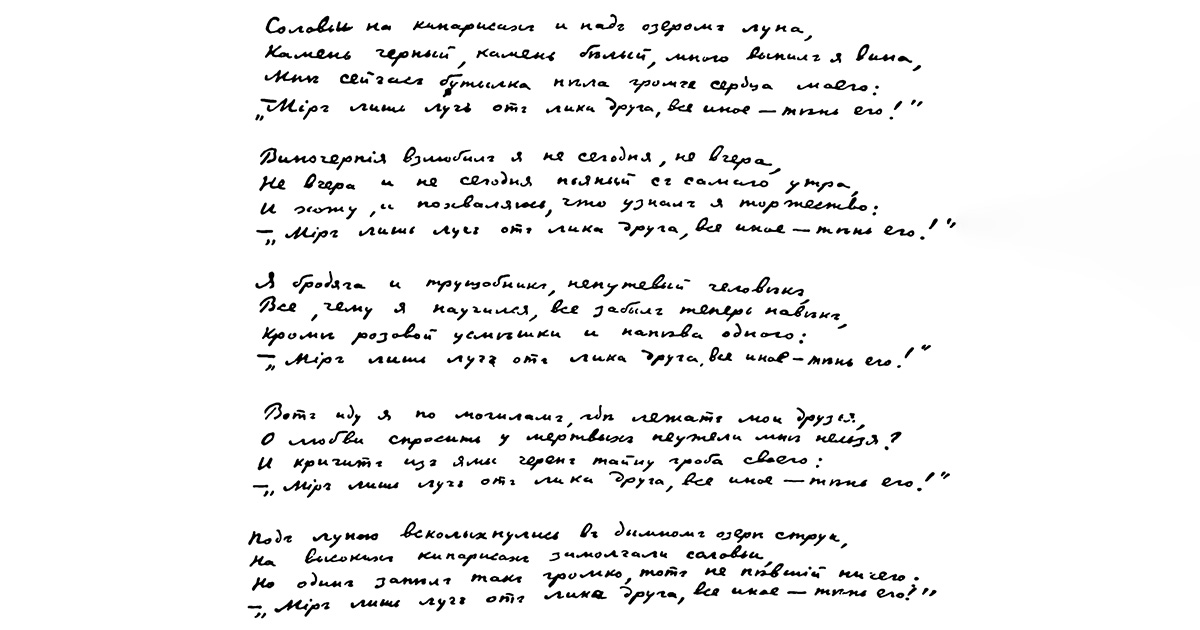 Соловьи на кипарисахъ и надъ озеромъ луна,
Камень черный, камень бѣлый, много выпилъ я вина,
Мнѣ сейчасъ бутылка пѣла громче сердца моего:
„Міръ лишь лучъ отъ лика друга, все иное — тѣнь его!"
Виночерпія взлюбилъ я не сегодня, не вчера,
Не вчера и не сегодня пьяный съ самаго утра,
И хожу, и похваляюсь, что узналъ я торжество:
— „Міръ лишь лучъ отъ лика друга, все иное — тѣнь его!"
Я бродяга и трущобникъ, непутевый человѣкъ,
Все, чему я научился, все забылъ теперь навѣкъ,
Кромѣ розовой усмѣшки и напѣва одного:
— „Міръ лишь лучъ отъ лика друга, все иное — тѣнь его!"
Вотъ иду я по могиламъ, гдѣ лежатъ мои друзья,
О любви спросить у мертвыхъ неужели мнѣ нельзя?
И кричитъ изъ ямы черепъ тайну гроба своего:
— „Міръ лишь лучъ отъ лика друга, все иное — тѣнь его!"
Подъ луною всколыхнулись въ дымномъ озерѣ струи,
На высокихъ кипарисахъ замолчали соловьи,
Но одинъ запѣлъ такъ громко, тотъ не пѣвшій ничего:
— „Міръ лишь лучъ отъ лика друга, все иное — тѣнь его!"